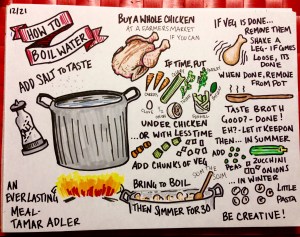 12/21
HOW TO
BOIL WATER
ADD SALT TO TASTE
AN
EVERLASTING
MEAL-
TAMAR ADLER
BUY A WHOLE CHICKEN
AT A FARMERS MARKET
IF YOU CAN
IF TIME, PUT
UNDER CHICKEN
...OR WITH LESS TIME
ADD CHUNKS OF VEG
BRING TO BOIL
THEN SIMMER FOR 30
IF VEG IS DONE...
REMOVE THEM
SHAKE A
LEG- IF COMES
LOOSE, ITS
DONE
WHEN DONE, REMOVE
FROM POT
TASTE BROTH
GOOD?- DONE!
EH?- LET IT KEEP ON
THEN... IN SUMMER
ADD
PEAS
ZUCCHINI
ONIONS
... IN WINTER
LITTLE
PASTA
BE CREATIVE!